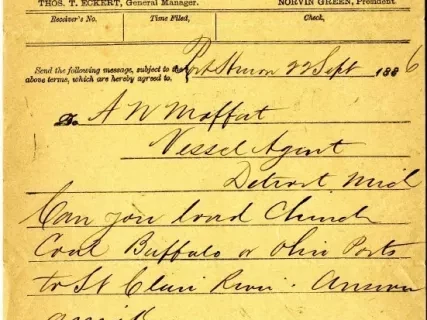 THOS. T. ECKERT, General Manager. NORVIN GREEN, President.
Receiver's No. Time Filed, Check,
Send the following message, subject to the
above terms, which are hereby agreed to.
Port Huron 22 Sept 1886
To A W Moffat
Vessel Agent
Detroit Mich
Can you load Church
Coal Buffalo or Ohio Ports
to St Clair River. Answer